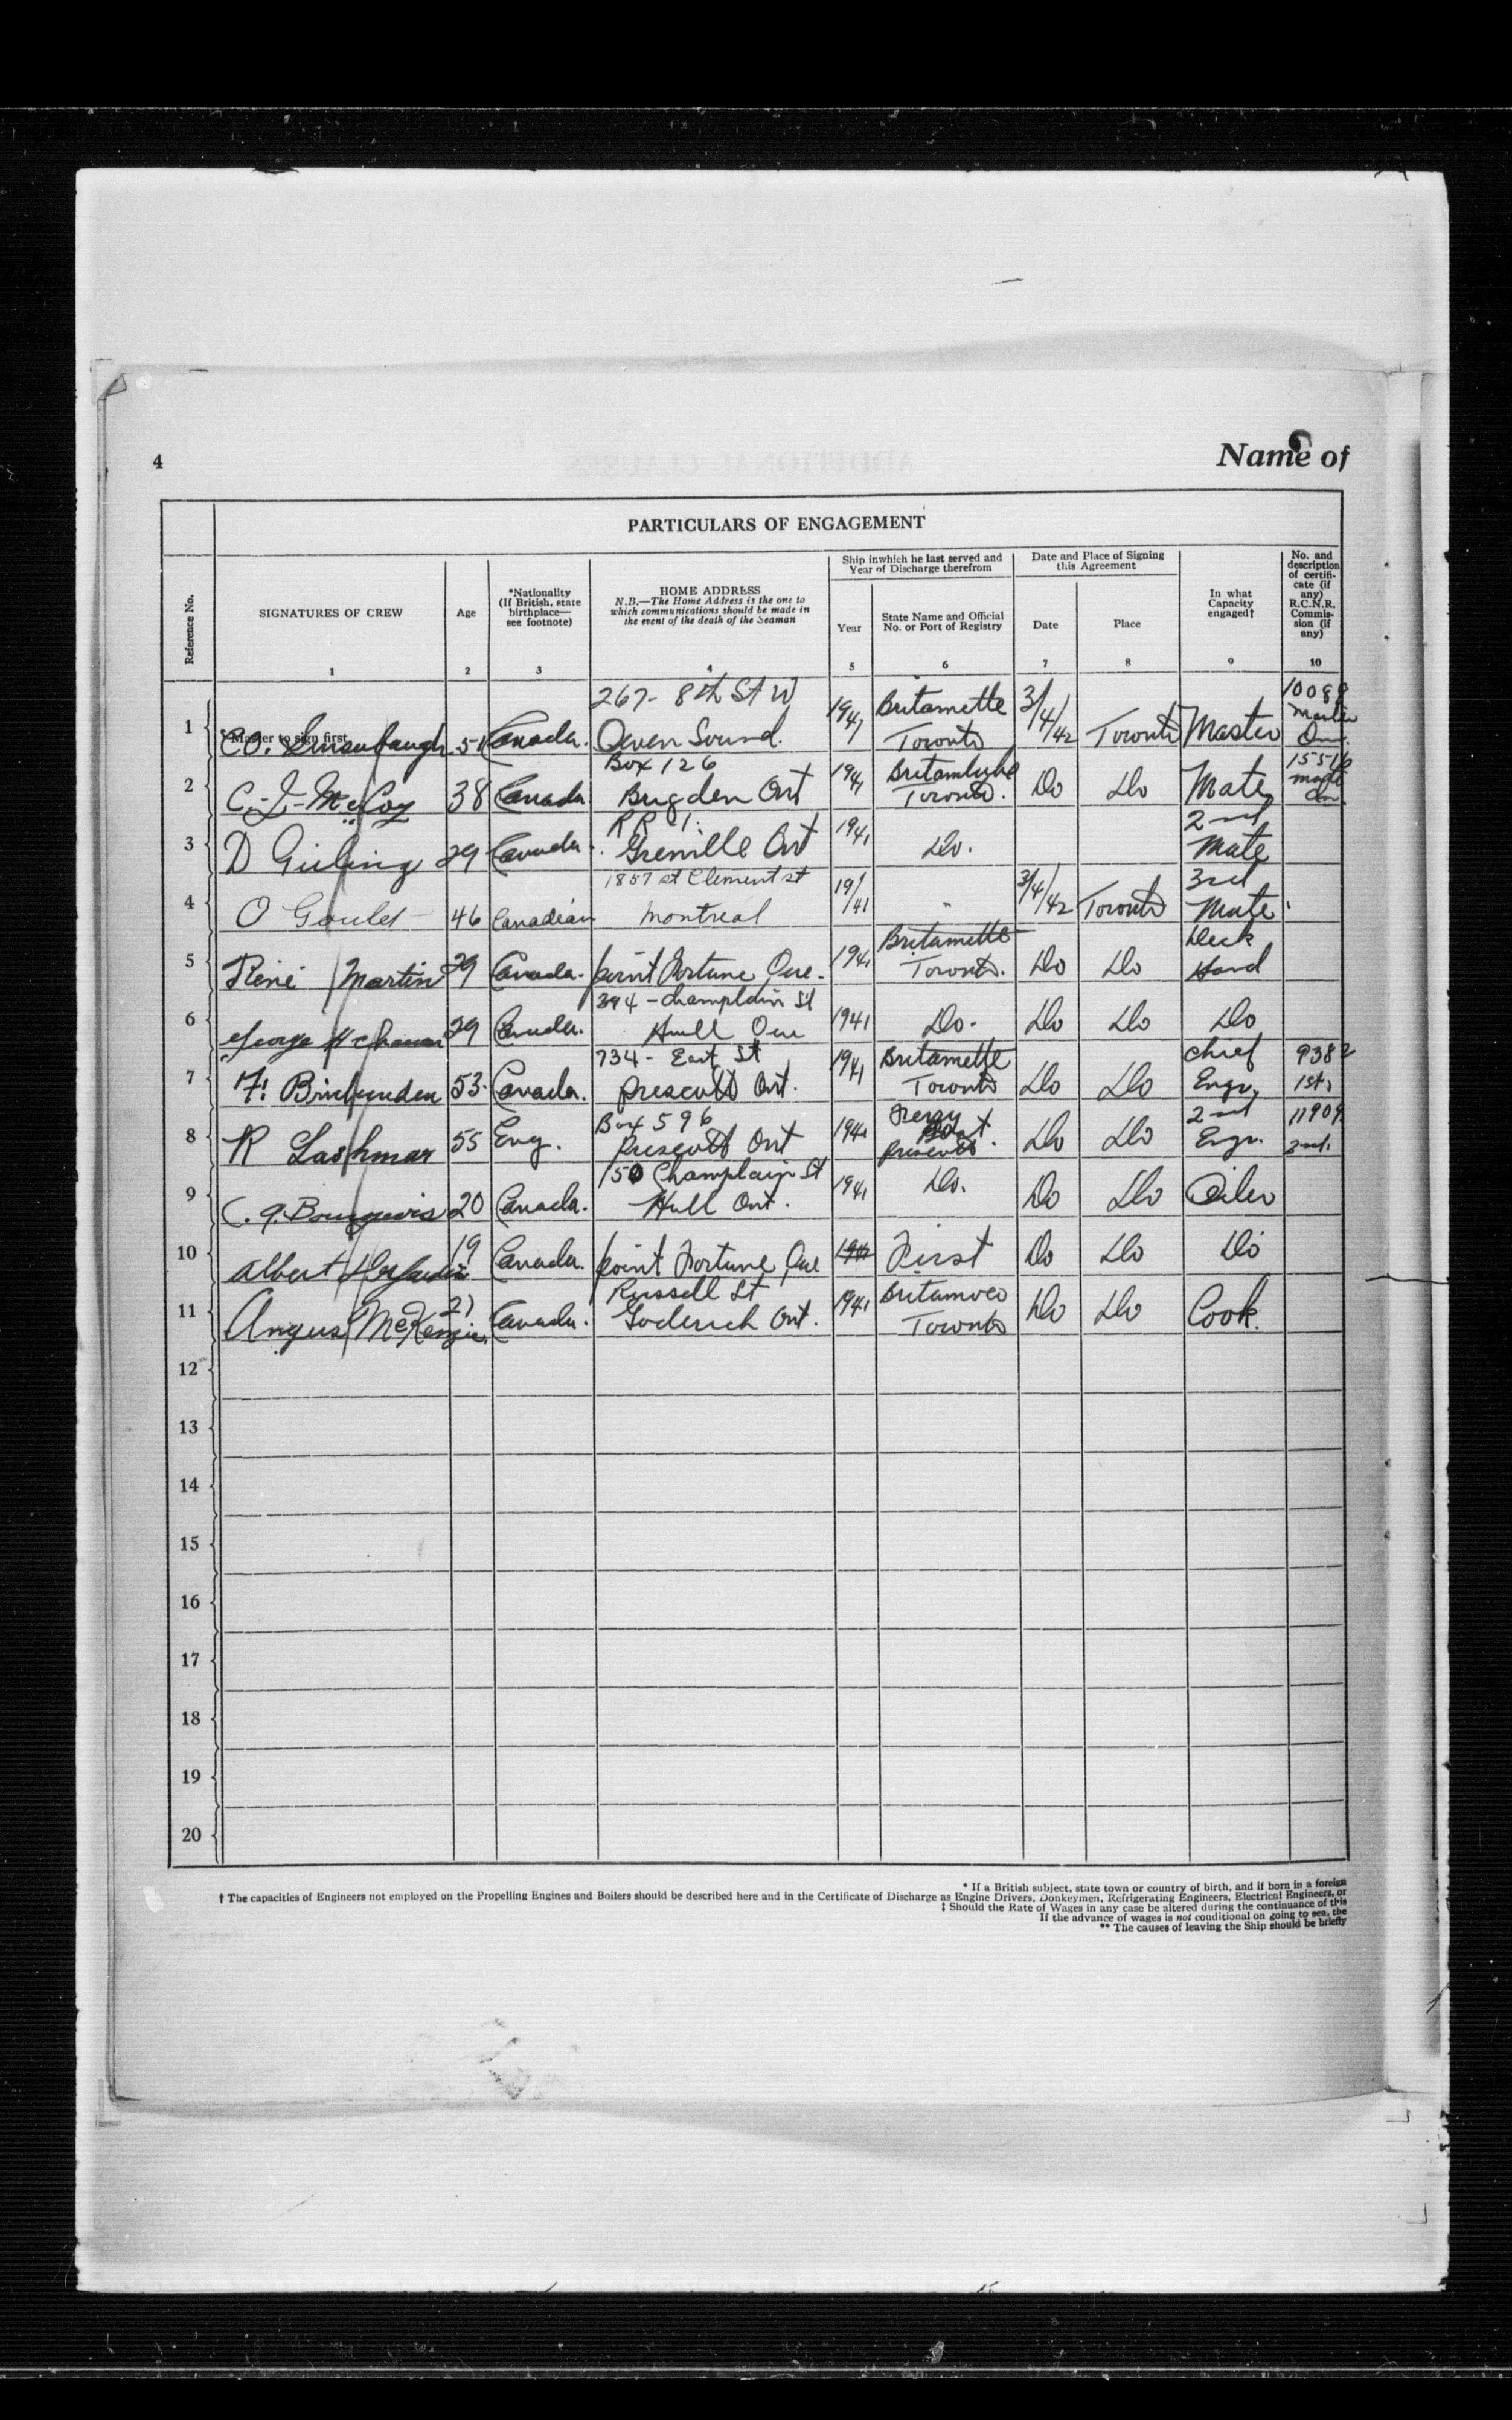 4
Name of
PARTICULARS OF ENGAGEMENT
Reference No.
SIGNATURES OF CREW
1
Age
2
*Nationality
(If British, state
birthplace—
see footnote)
3
HOME ADDRESS
N.B.—The Home Address is the one to
which communications should be made in
the event of the death of the Seaman
4
Ship in which he last served and
Year of Discharge therefrom
Year
5
State Name and Official
No. or Port of Registry
6
Date and Place of Signing
this Agreement
Date
7
Place
8
In what
Capacity
engaged†
9
No. and
description
of certifi-
cate (if
any)
R.C.N.R.
Commis-
sion (if
any)
10
1 *Master to sign first 51 Canada. 267- 8th St W Owen Sound. 1941 Britamette Toronto 3/4/42 Toronto Master Master
2 C. J. McCoy 38 Canada Box 126 Brigden Ont 1941 Toronto. Do Do Mate
3 D 29 Canada. RR 1. Grenville Ont 1941 Do. 2nd Mate
4 O Goulet 46 Canadian 1857 st Clement st Montreal 19/41 " 3/4/42 Toronto 3rd Mate
5 René Martin 29 Canada. point Fortune Que. 1941 Britamette Toronto. Do Do Deck Hand
6 George 29 Canada. 394 - Champlain St Hull Que 1941 Do. Do Do Do
7 F. 53. Canada. 734 - East St Prescott Ont. 1941 Britamette Toronto Do Do Chief Engr. 9382 1st.
8 R Lashmar 55 Eng. Box 596 Prescott Ont 1941 Ferry Boat Prescott. Do Do 2nd Engr. 11909 2nd.
9 20 Canada. 150 Champlain St Hull Ont. 1941 Do. Do Do Oiler
10 Albert 19 Canada. point Fortune Que 1941 First Do Do Do
11 Angus McKenzie. 21 Canada. Russell St Goderich Ont. 1941 Britamoco Toronto Do Do Cook.
12
13
14
15
16
17
18
19
20
* If a British subject, state town or country of birth, and if born in a foreign
† The capacities of Engineers not employed on the Propelling Engines and Boilers should be described here and in the Certificate of Discharge as Engine Drivers, Donkeymen, Refrigerating Engineers, Electrical Engineers, or
‡ Should the Rate of Wages in any case be altered during the continuance of this
If the advance of wages is not conditional on going to sea, the
** The causes of leaving the Ship should be briefly